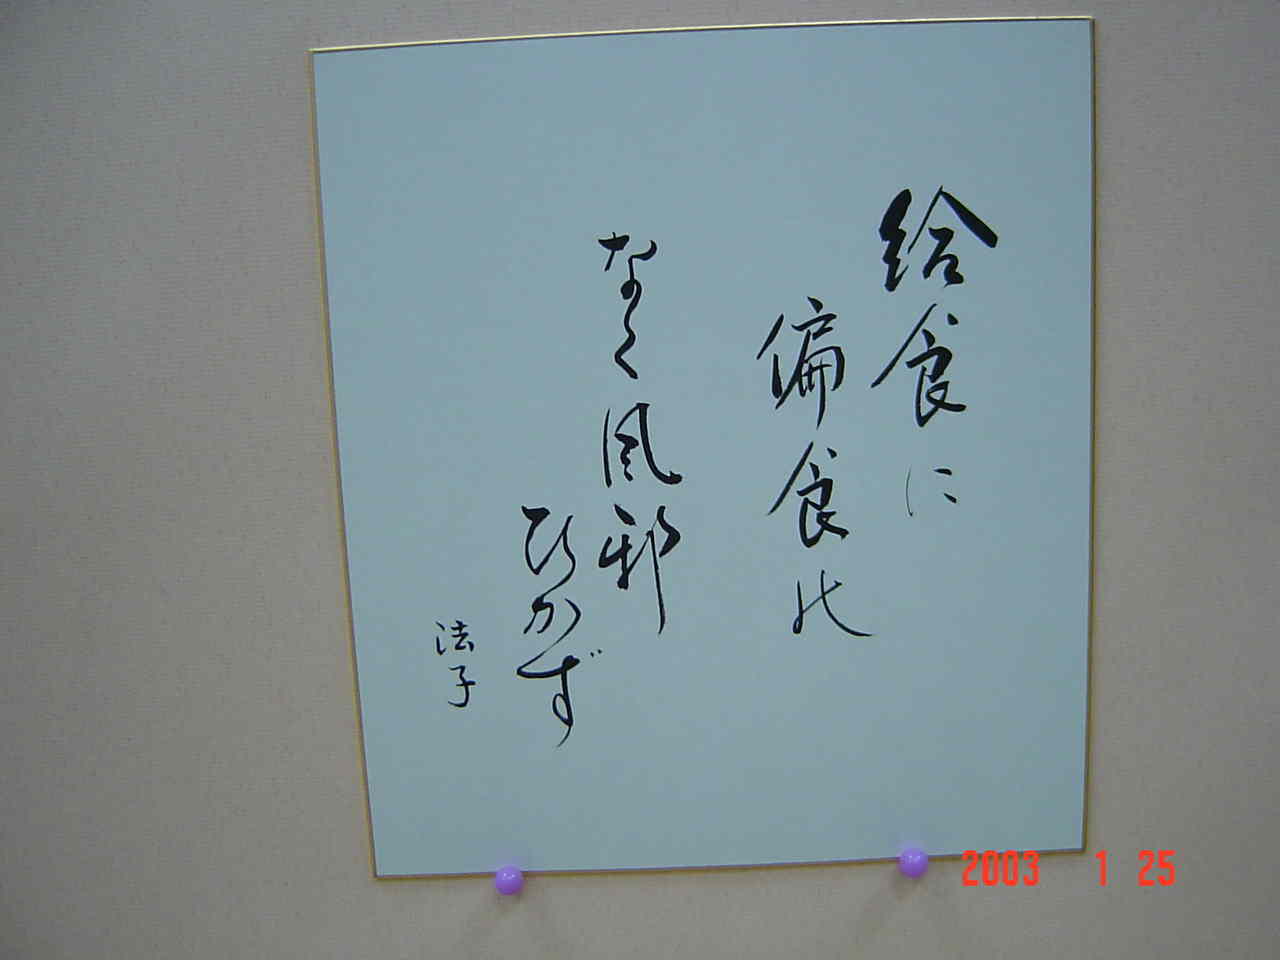 給食に
偏食の
なく風邪
ひかず
法子
2003 1 25